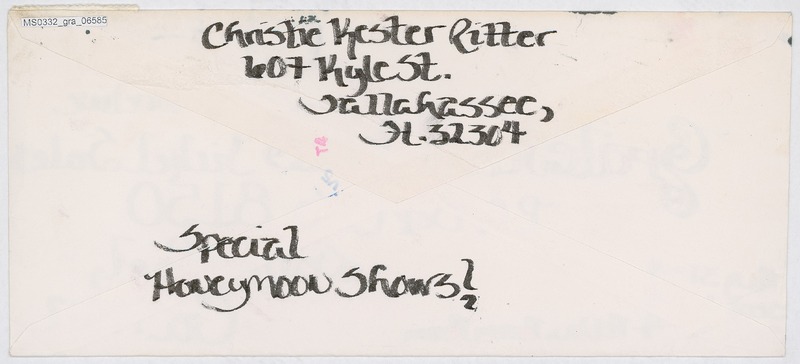 MS0332_gra_06585
Christie Kester Ritter
607 Kyle St.
Tallahassee,
Fl. 32304
Special
Honeymoon Shows?